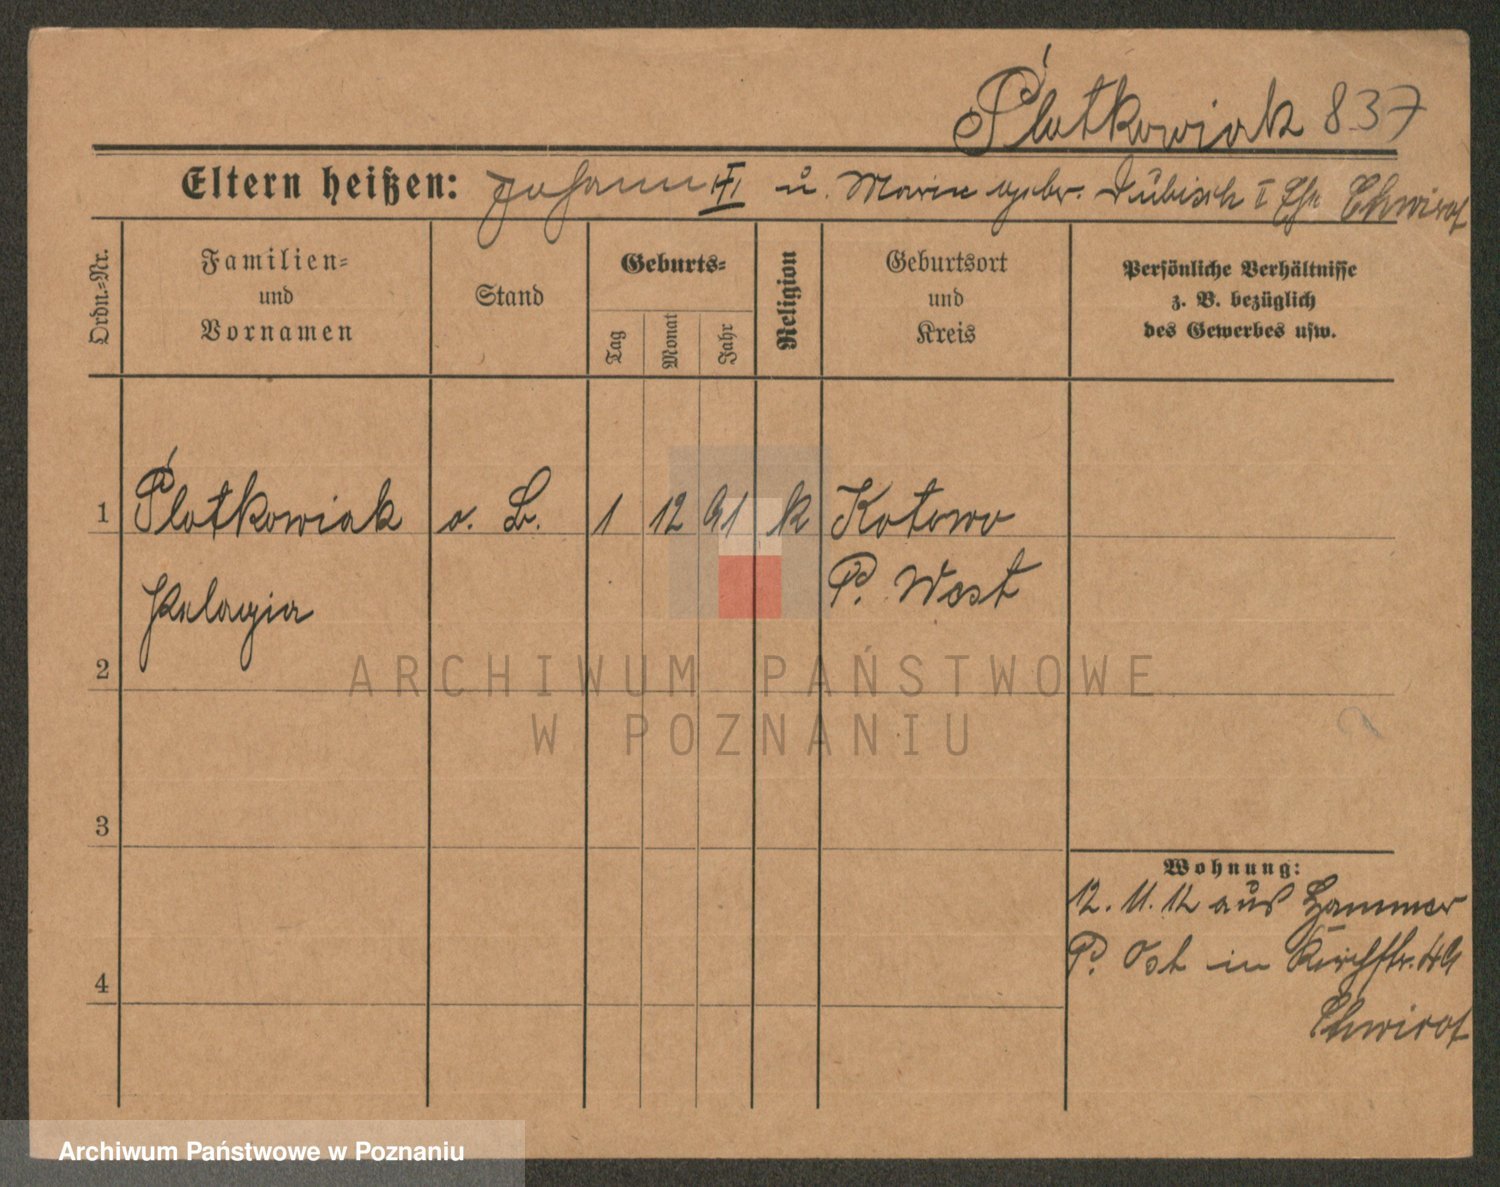 Plotkowiak 837
Eltern heißen: Johann II u. Marie geb. Dübisch I Ehe Chwirot
Ordn.-Nr.
Familien-
und
Vornamen
Stand
Geburts-
Tag
Monat
Jahr
Religion
Geburtsort
und
Kreis
Persönliche Verhältnisse
z. B. bezüglich
des Gewerbes usw.
1 Plotkowiak o. B. 1 12 91 k Kotowo
Pelagia P. West
2
3
4
Wohnung:
12. 11. 12 aus Hammer
P. Ost in Kirchstr. 49
Chwirot
ARCHIWUM PAŃSTWOWE
W POZNANIU
Archiwum Państwowe w Poznaniu